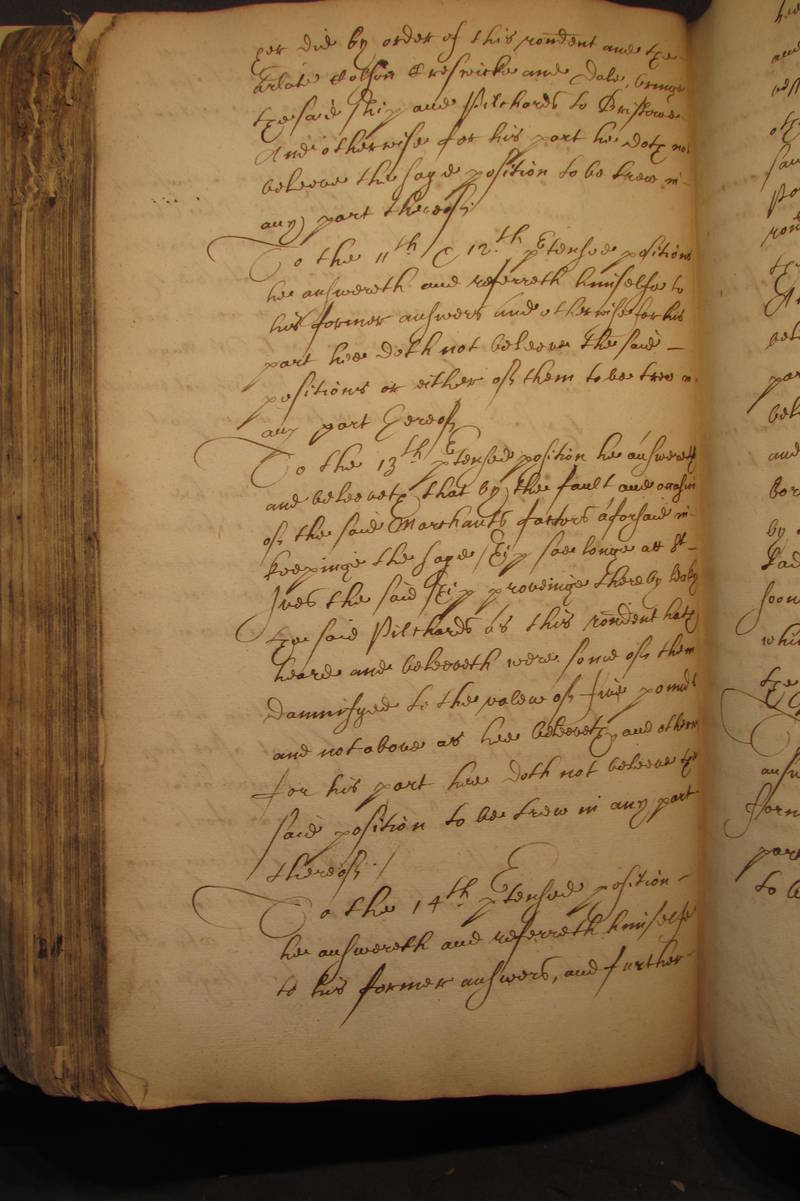 per die by order of this rondent and the
arlate Hobson Creswicke and Dale, bringe
the said ship and Pilchards to Bristowe
And otherwise for his part he doth not
beleeve the sayd position to be trew in
any part thereof.
To the 11th & 12th ptensed positions
he answereth and referreth himselfe to
his former answers and otherwise for his
part hee doth not beleeve the said
positions or either of them to be trew in
any part hereof
To the 13th ptensed position he answereth
and beleeveth that by the fault and occasion
of the said Marchants factors aforsaid in
keepinge the sayd ship soe longe att St
Ives the said ship proveinge thereby leaky
the said Pilchards as this rondent hath
heard and beleeveth were some of them
damnifyed to the valew of five pounds
and not above as hee beleeveth, and otherw
for his part hee doth not beleeve the
said position to be trew in any part
thereof /
To the 14th ptensed position
he answereth and referreth himselfe
to his former answers, and further